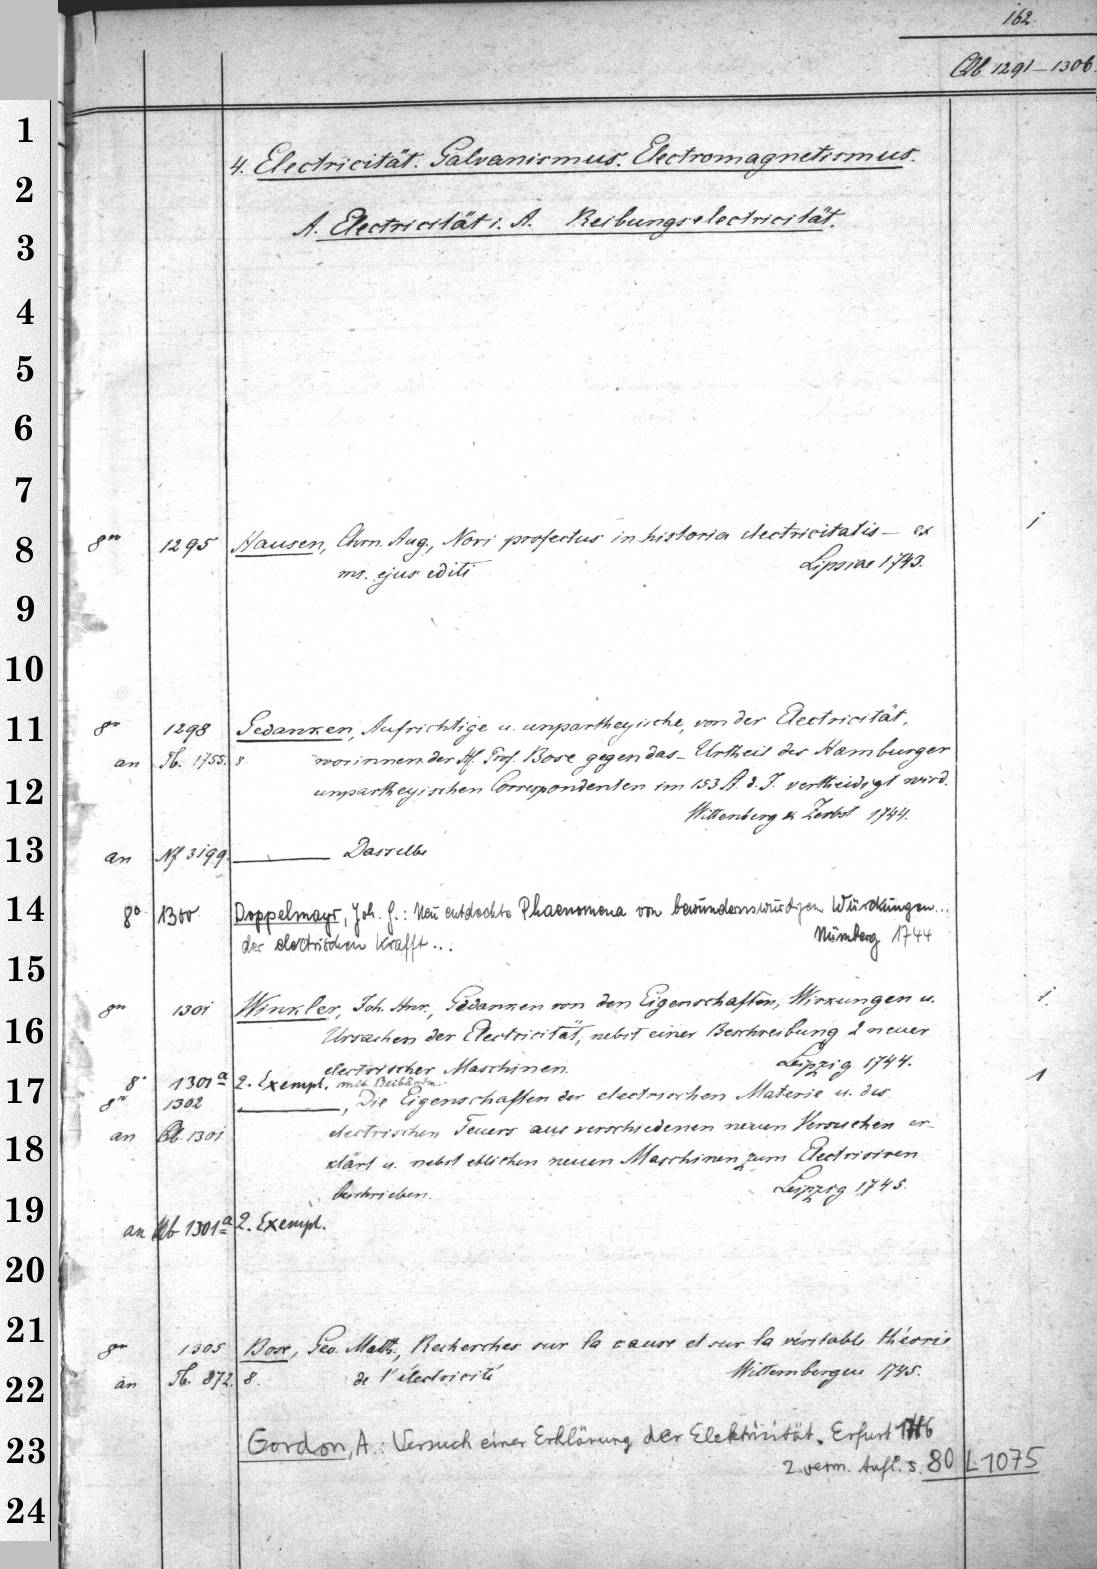 162.
1291-1306.
1
2
3
4
5
6
7
8
9
10
11
12
13
14
15
16
17
18
19
20
21
22
23
24
4. Electricität. Galvanismus. Electromagnetismus.
A. Electricität i. A. Reibungselectricität.
1295 Hausen, Chrn. Aug., Novi profectus in historia electricitatis - ex
ms. ejus editi Lipsiae 1743.
1298 Gedanken, Aufrichtige u. unpartheyische, von der Electricität,
an 1755. 8 worinnen der H. Prof. Bose gegen das Urtheil des Hamburger
unpartheyischen Correspondenten im 153 A. d. J. vertheidigt wird.
Wittenberg & Zerbst 1744.
an Nf 3199. Dasselbe
8° 1300 Doppelmayr, Joh. G.: Neu entdeckte Phaenomena von bewundernswürdigen Würckungen...
der electrischen Krafft... Nürnberg 1744
1301 Winkler, Joh. Hnr., Gedanken von den Eigenschaften, Wirkungen u. 1.
Ursachen der Electricität, nebst einer Beschreibung 2 neuer
electrischer Maschinen. Leipzig 1744.
8° 1301ª 2. Exempl. mit
1302 , Die Eigenschaften der electrischen Materie u. des 1
an 1301 electrischen Feuers aus verschiedenen neuen Versuchen er-
klärt u. nebst etlichen neuen Maschinen zum Electrisiren
beschrieben. Leipzig 1745.
an 1301ª 2. Exempl.
1305 Bose, Geo. Matth., Recherches sur la cause et sur la véritable théorie
an 872. 8. de l'électricité Wittembergue 1745.
Gordon, A.: Versuch einer Erklärung der Elektrizität. Erfurt 1746
2. verm. Aufl. s. 80 L 1075